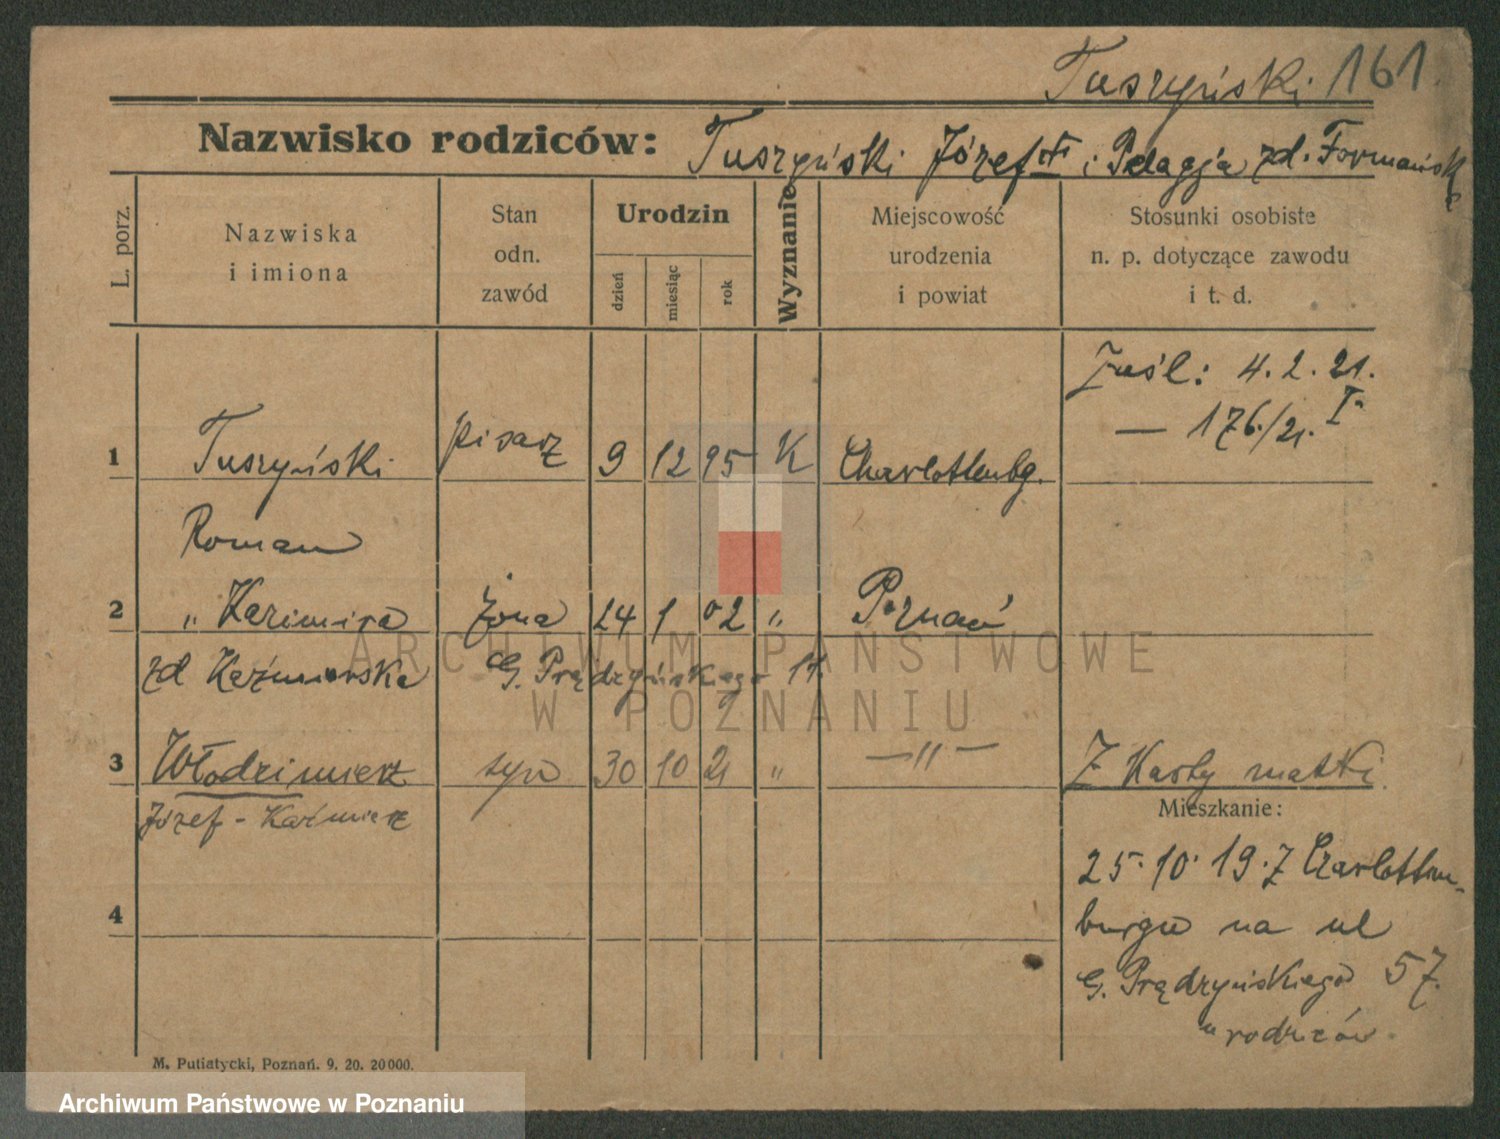 Tuszyński 161.
Nazwisko rodziców: Tuszyński Józef i Pelagja zd. Formańsk
L. porz.
Nazwiska
i imiona
Stan
odn.
zawód
Urodzin
dzień
miesiąc
rok
Wyznanie
Miejscowość
urodzenia
i powiat
Stosunki osobiste
n. p. dotyczące zawodu
i t. d.
zaśl: 4. 2. 21.
— 176./21. I
1 Tuszyński pisarz 9 12 95 K Charlottenbg.
Roman
2 „ Kazimira żona 24 1 02 „ Poznań
zd Kaźmierska G. Prądzyńskiego
3 Włodzimierz syn 30 10 21 „ — „ — Z Karty matki
Józef - Kaźmierz
Mieszkanie:
25. 10. 19. Z Charlotten-
burgu na ul
4
G. Prądzyńskiego 57.
u rodziców.
M. Putiatycki, Poznań. 9. 20. 20000.
ARCHIWUM PAŃSTWOWE
W POZNANIU
Archiwum Państwowe w Poznaniu